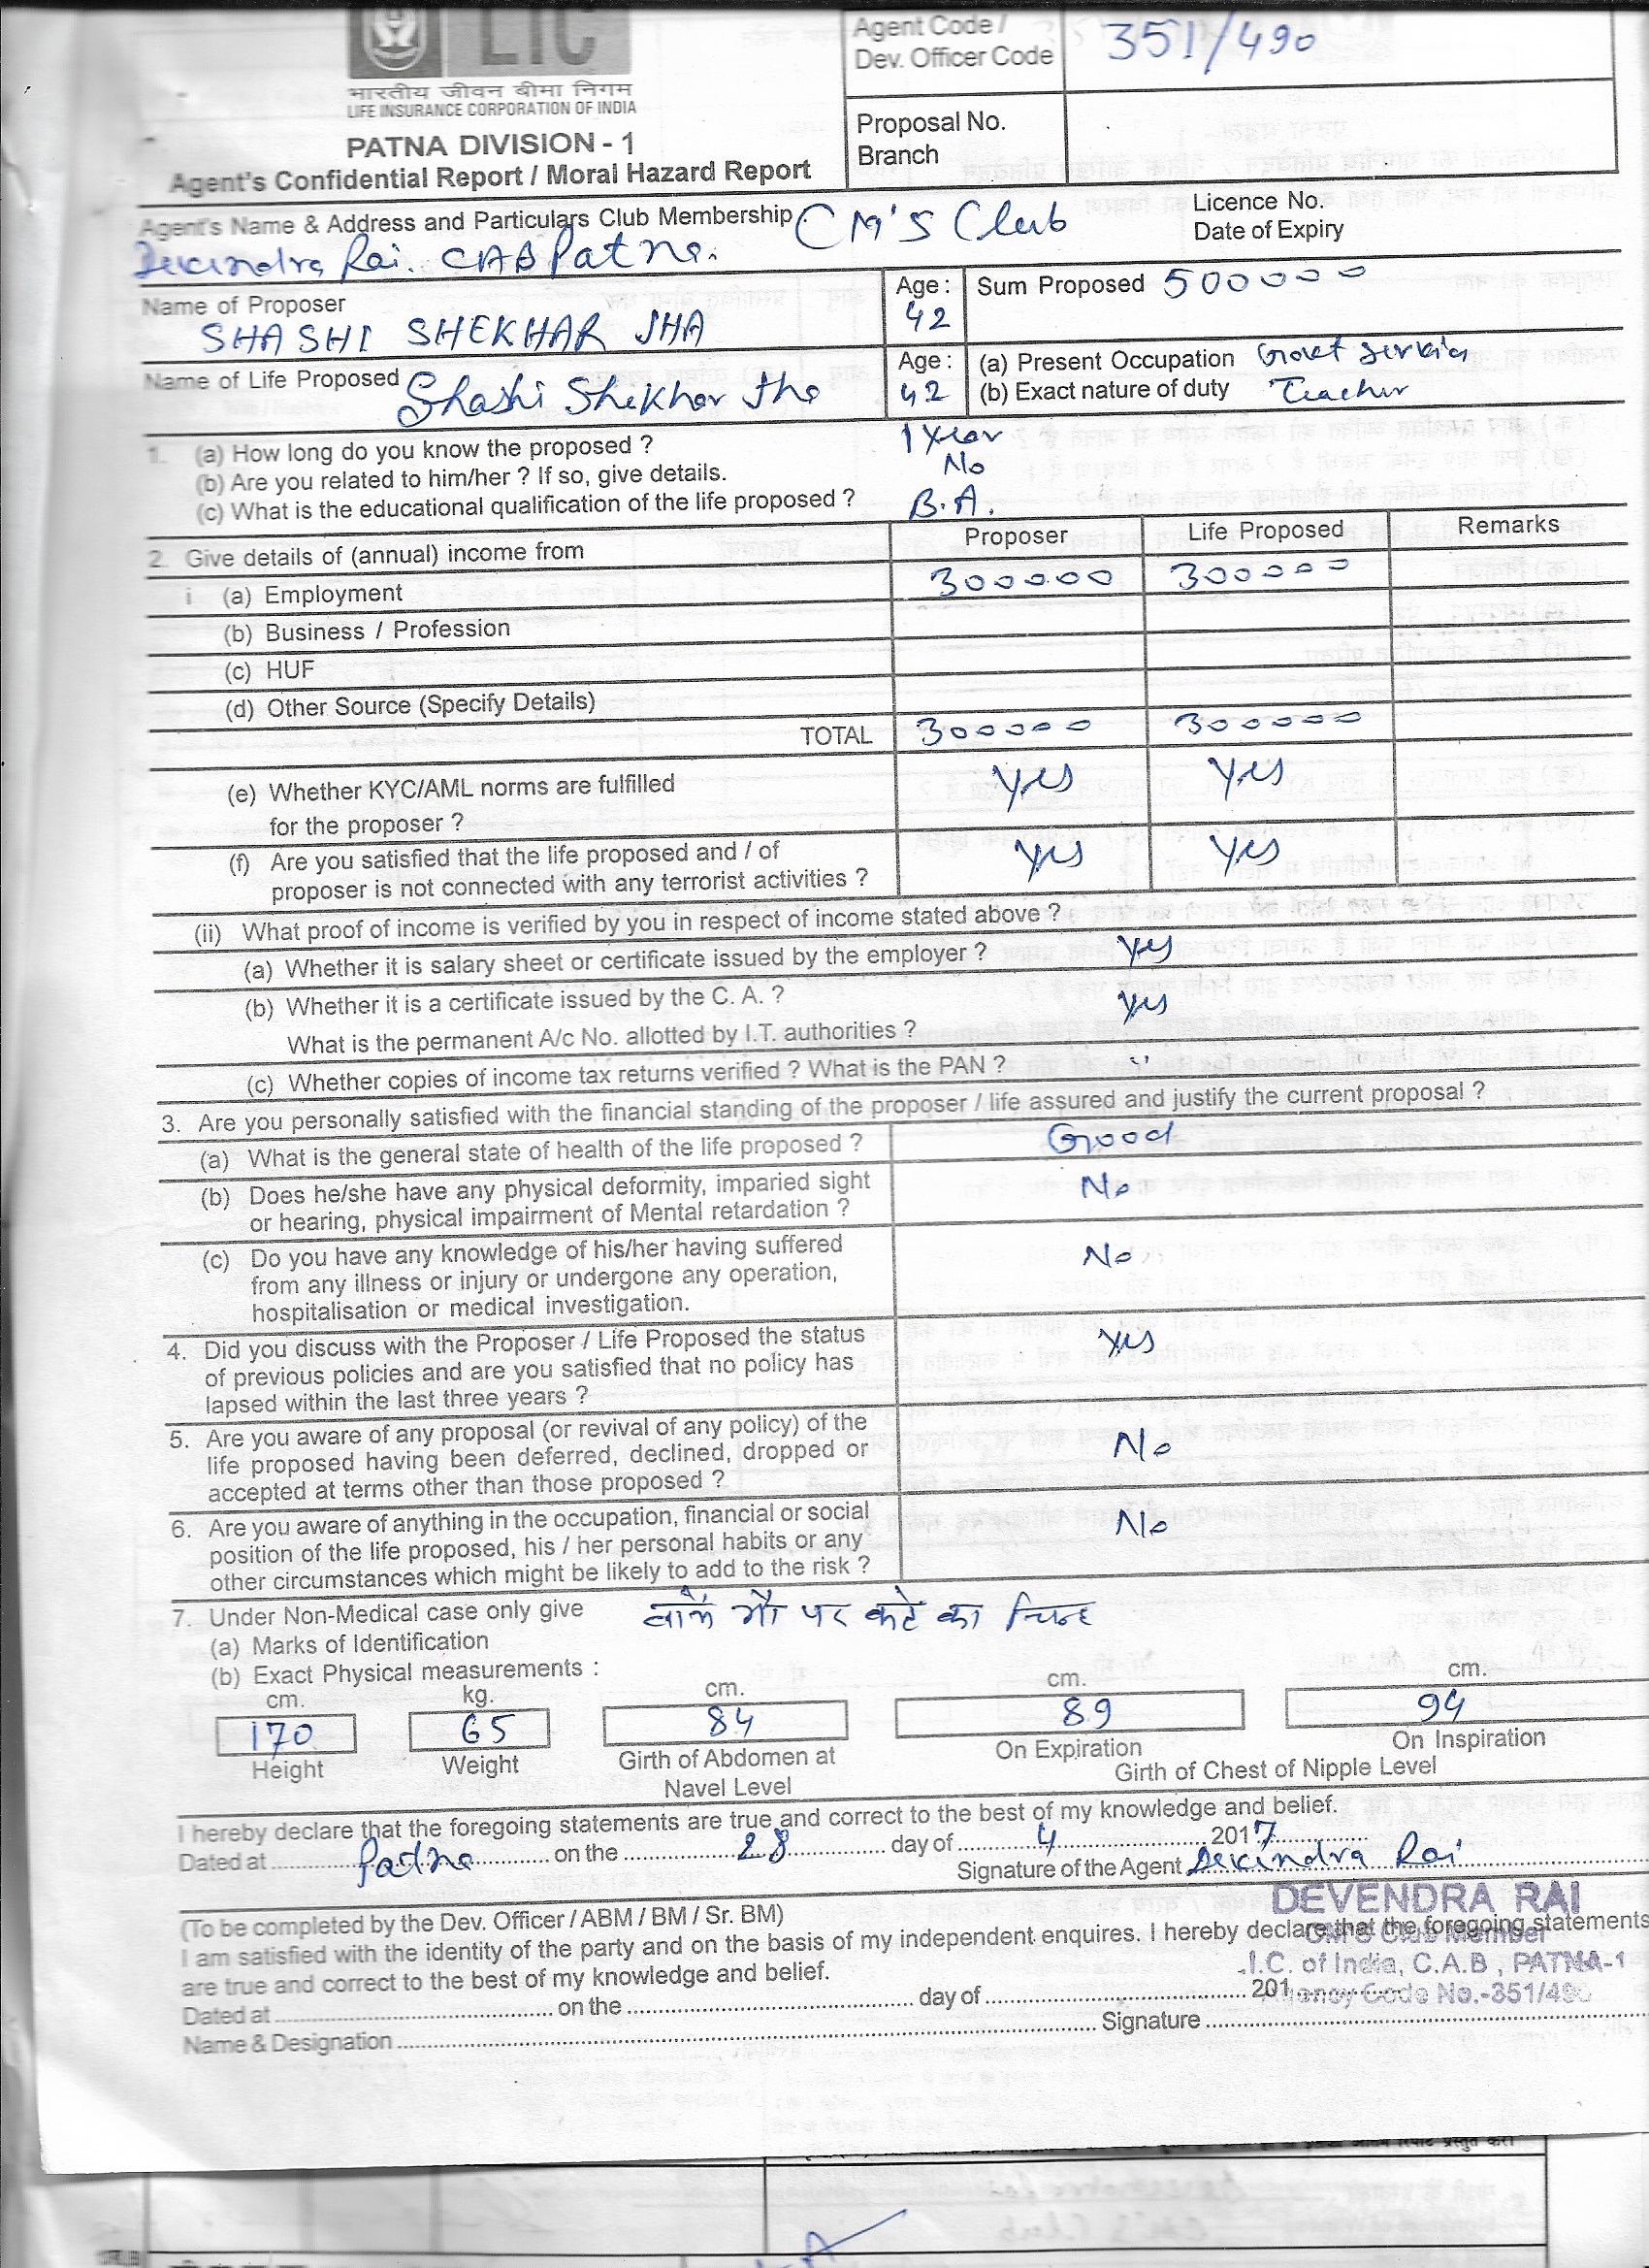 LIC
Agent Code /
Dev. Officer Code 351/490
भारतीय जीवन बीमा निगम
LIFE INSURANCE CORPORATION OF INDIA
PATNA DIVISION - 1
Proposal No.
Branch
Agent's Confidential Report / Moral Hazard Report
Agent's Name & Address and Particulars Club Membership CM'S Club
Licence No.
Date of Expiry
Devendra Rai. CAB Patna.
Name of Proposer Age : Sum Proposed 500000
SHASHI SHEKHAR JHA 42
Name of Life Proposed Shashi Shekhar Jha Age : 42
(a) Present Occupation Govt Service
(b) Exact nature of duty Teacher
1. (a) How long do you know the proposed ? 1 Year
(b) Are you related to him/her ? If so, give details. No
(c) What is the educational qualification of the life proposed ? B.A.
2. Give details of (annual) income from Proposer Life Proposed Remarks
i (a) Employment 300000 300000
(b) Business / Profession
(c) HUF
(d) Other Source (Specify Details)
TOTAL 300000 300000
(e) Whether KYC/AML norms are fulfilled Yes Yes
for the proposer ?
(f) Are you satisfied that the life proposed and / of Yes Yes
proposer is not connected with any terrorist activities ?
(ii) What proof of income is verified by you in respect of income stated above ?
(a) Whether it is salary sheet or certificate issued by the employer ? Yes
(b) Whether it is a certificate issued by the C. A. ? Yes
What is the permanent A/c No. allotted by I.T. authorities ?
(c) Whether copies of income tax returns verified ? What is the PAN ? "
3. Are you personally satisfied with the financial standing of the proposer / life assured and justify the current proposal ?
(a) What is the general state of health of the life proposed ? Good
(b) Does he/she have any physical deformity, imparied sight No
or hearing, physical impairment of Mental retardation ?
(c) Do you have any knowledge of his/her having suffered No
from any illness or injury or undergone any operation,
hospitalisation or medical investigation.
4. Did you discuss with the Proposer / Life Proposed the status Yes
of previous policies and are you satisfied that no policy has
lapsed within the last three years ?
5. Are you aware of any proposal (or revival of any policy) of the
life proposed having been deferred, declined, dropped or No
accepted at terms other than those proposed ?
6. Are you aware of anything in the occupation, financial or social No
position of the life proposed, his / her personal habits or any
other circumstances which might be likely to add to the risk ?
7. Under Non-Medical case only give पर कटे का चिन्ह
(a) Marks of Identification
(b) Exact Physical measurements :
cm. kg. cm. cm. cm.
170 65 84 89 94
Height Weight Girth of Abdomen at On Expiration On Inspiration
Navel Level Girth of Chest of Nipple Level
I hereby declare that the foregoing statements are true and correct to the best of my knowledge and belief.
Dated at Patna on the 28 day of 4 2017
Signature of the Agent Devendra Rai
DEVENDRA RAI
(To be completed by the Dev. Officer / ABM / BM / Sr. BM)
I am satisfied with the identity of the party and on the basis of my independent enquires. I hereby declare that the foregoing statements
Club Member
are true and correct to the best of my knowledge and belief.
.I.C. of India, C.A.B , PATNA-1
Dated at on the day of 201
Code No.-351/490
Name & Designation Signature